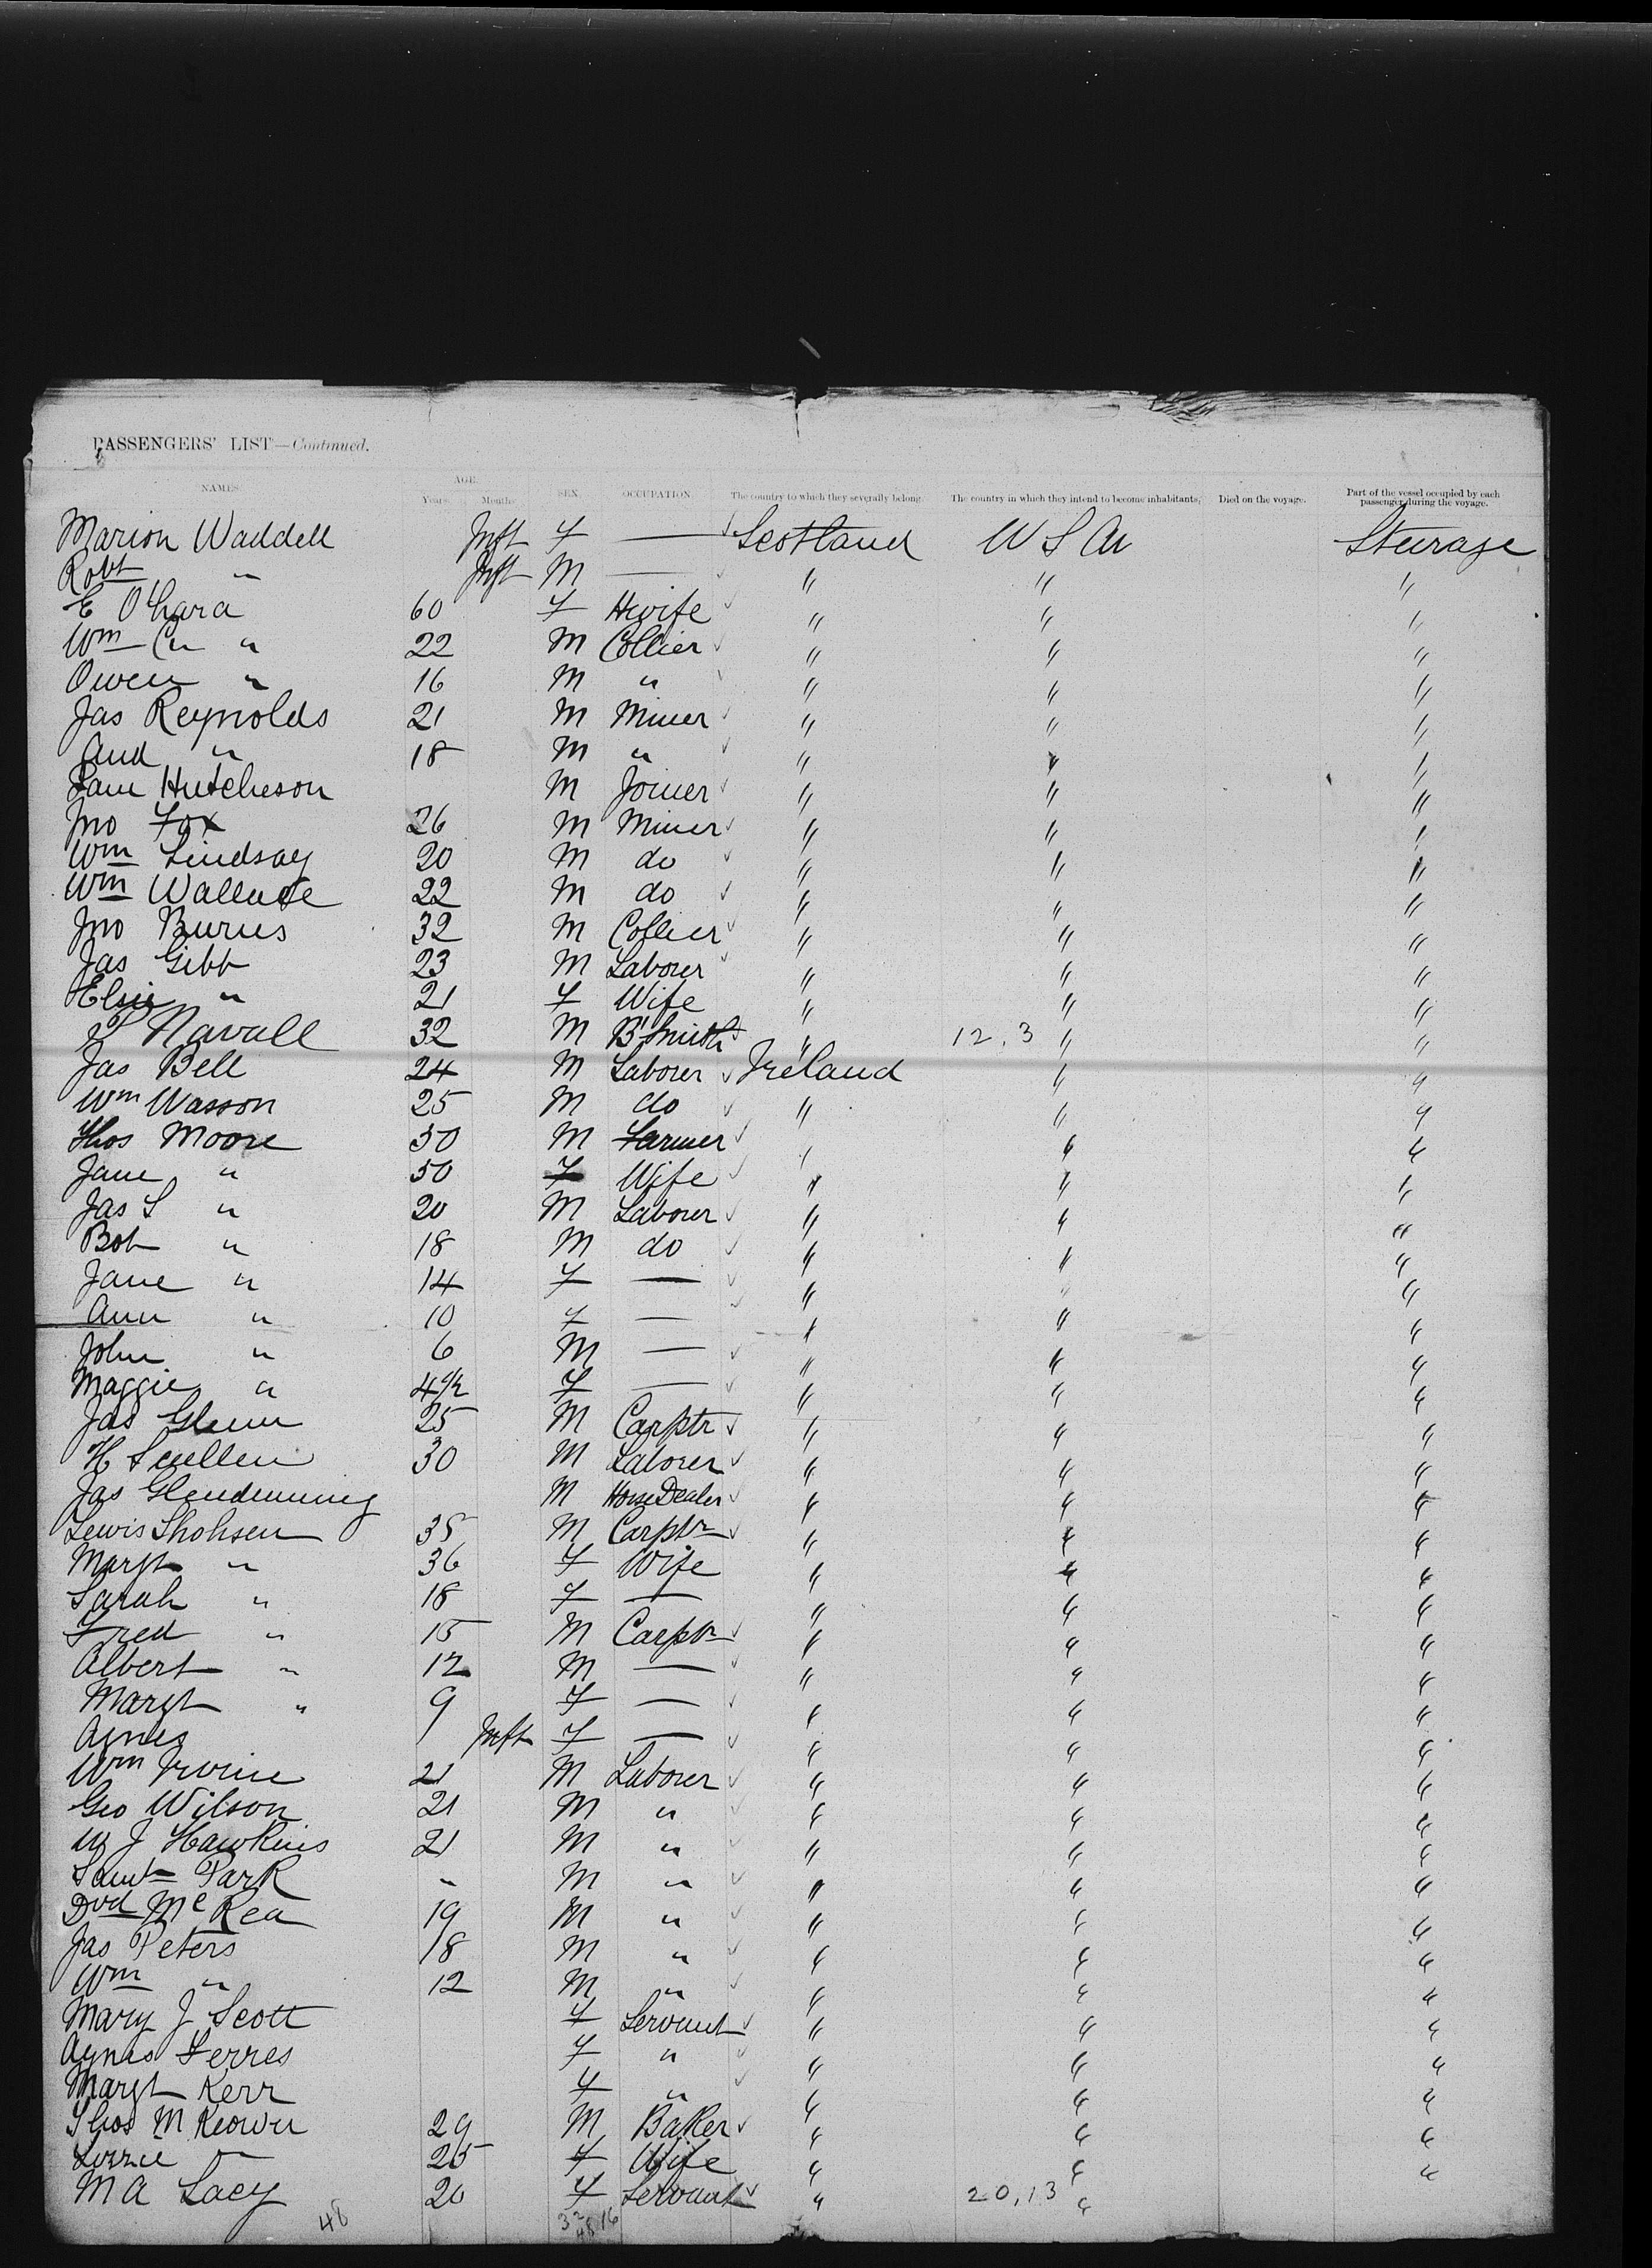 PASSENGERS' LIST—Continued.
NAMES AGE. Years. Months. SEX. OCCUPATION. The country to which they severally belong. The country in which they intend to become inhabitants. Died on the voyage. Part of the vessel occupied by each passenger during the voyage.
Marion Waddell Inft F — Scotland U S A Steerage
Robt " Inft M — " " "
E O'hara 60 F Hwife " " "
Wm " 22 M Collier " " "
Owen " 16 M " " " "
Jas Reynolds 21 M Miner " " "
And " 18 M " " " "
Hutcheson M Joiner " " "
Jno Fox 26 M Miner " " "
Wm Lindsay 20 M do " " "
Wm Wallace 22 M do " " "
Jno Burns 32 M Collier " " "
Jas Gibb 23 M Laborer " " "
Elsie " 21 F Wife " " "
P Navall 32 M B'Smith " 12,3 " "
Jas Bell 24 M Laborer Ireland " "
Wm Wasson 25 M do " " "
Thos Moore 50 M Farmer " " "
Jane " 50 F Wife " " "
Jas S " 20 M Laborer " " "
Bob " 18 M do " " "
Jane " 14 F — " " "
Ann " 10 F — " " "
John " 6 M — " " "
Maggie " 4 1/2 F — " " "
Jas Glenn 25 M Carptr " " "
H Scullen 30 M Laborer " " "
Jas Glendenning M Horse Dealer " " "
Lewis Shohsen 35 M Carptr " " "
Margt " 36 F Wife " " "
Sarah " 18 F — " " "
Fred " 15 M Carptr " " "
Albert " 12 M — " " "
Margt " 9 F — " " "
Agnes Inft F — " " "
Wm Irvine 21 M Laborer " " "
Geo Wilson 21 M " " " "
W J Hawkins 21 M " " " "
Saml Park " M " " " "
Dvd McRea 19 M " " " "
Jas Peters 18 M " " " "
Wm " 12 M " " " "
Mary J Scott F Servant " " "
Agnes Ferres F " " " "
Margt Kerr F " " " "
Thos McKeown 29 M Baker " " "
Lizzie " 25 F Wife " " "
M A Lacy 20 F Servant " 20,13 "
48 32 16
48